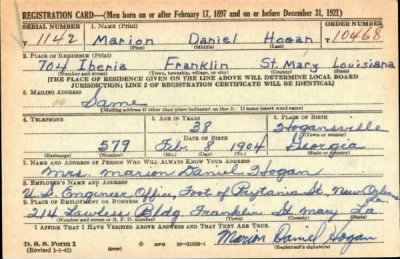 REGISTRATION CARD—(Men born on or after February 17, 1897 and on or before December 31, 1921)
SERIAL NUMBER 1. NAME (Print) ORDER NUMBER
T 1142 Marion Daniel Hogan T 10468
(First) (Middle) (Last)
2. PLACE OF RESIDENCE (Print)
704 Iberia Franklin St. Mary Louisiana
(Number and street) (Town, township, village, or city) (County) (State)
[THE PLACE OF RESIDENCE GIVEN ON THE LINE ABOVE WILL DETERMINE LOCAL BOARD
JURISDICTION; LINE 2 OF REGISTRATION CERTIFICATE WILL BE IDENTICAL]
3. MAILING ADDRESS
Same
[Mailing address if other than place indicated on line 2. If same insert word same]
4. TELEPHONE 5. AGE IN YEARS 6. PLACE OF BIRTH
38 Hogansville
DATE OF BIRTH (Town or county)
579 Feb. 8 1904 Georgia
(Exchange) (Number) (Mo.) (Day) (Yr.) (State or country)
7. NAME AND ADDRESS OF PERSON WHO WILL ALWAYS KNOW YOUR ADDRESS
Mrs. Marion Daniel Hogan
8. EMPLOYER'S NAME AND ADDRESS
U.S. Engineer Office, Foot of Prytania St. New Orleans La.
9. PLACE OF EMPLOYMENT OR BUSINESS
214 Lawless Bldg. Franklin St. Mary La
(Number and street or R. F. D. number) (Town) (County) (State)
I AFFIRM THAT I HAVE VERIFIED ABOVE ANSWERS AND THAT THEY ARE TRUE.
D. S. S. Form 1
(Revised 1-1-42) Marion Daniel Hogan
(Registrant's signature)